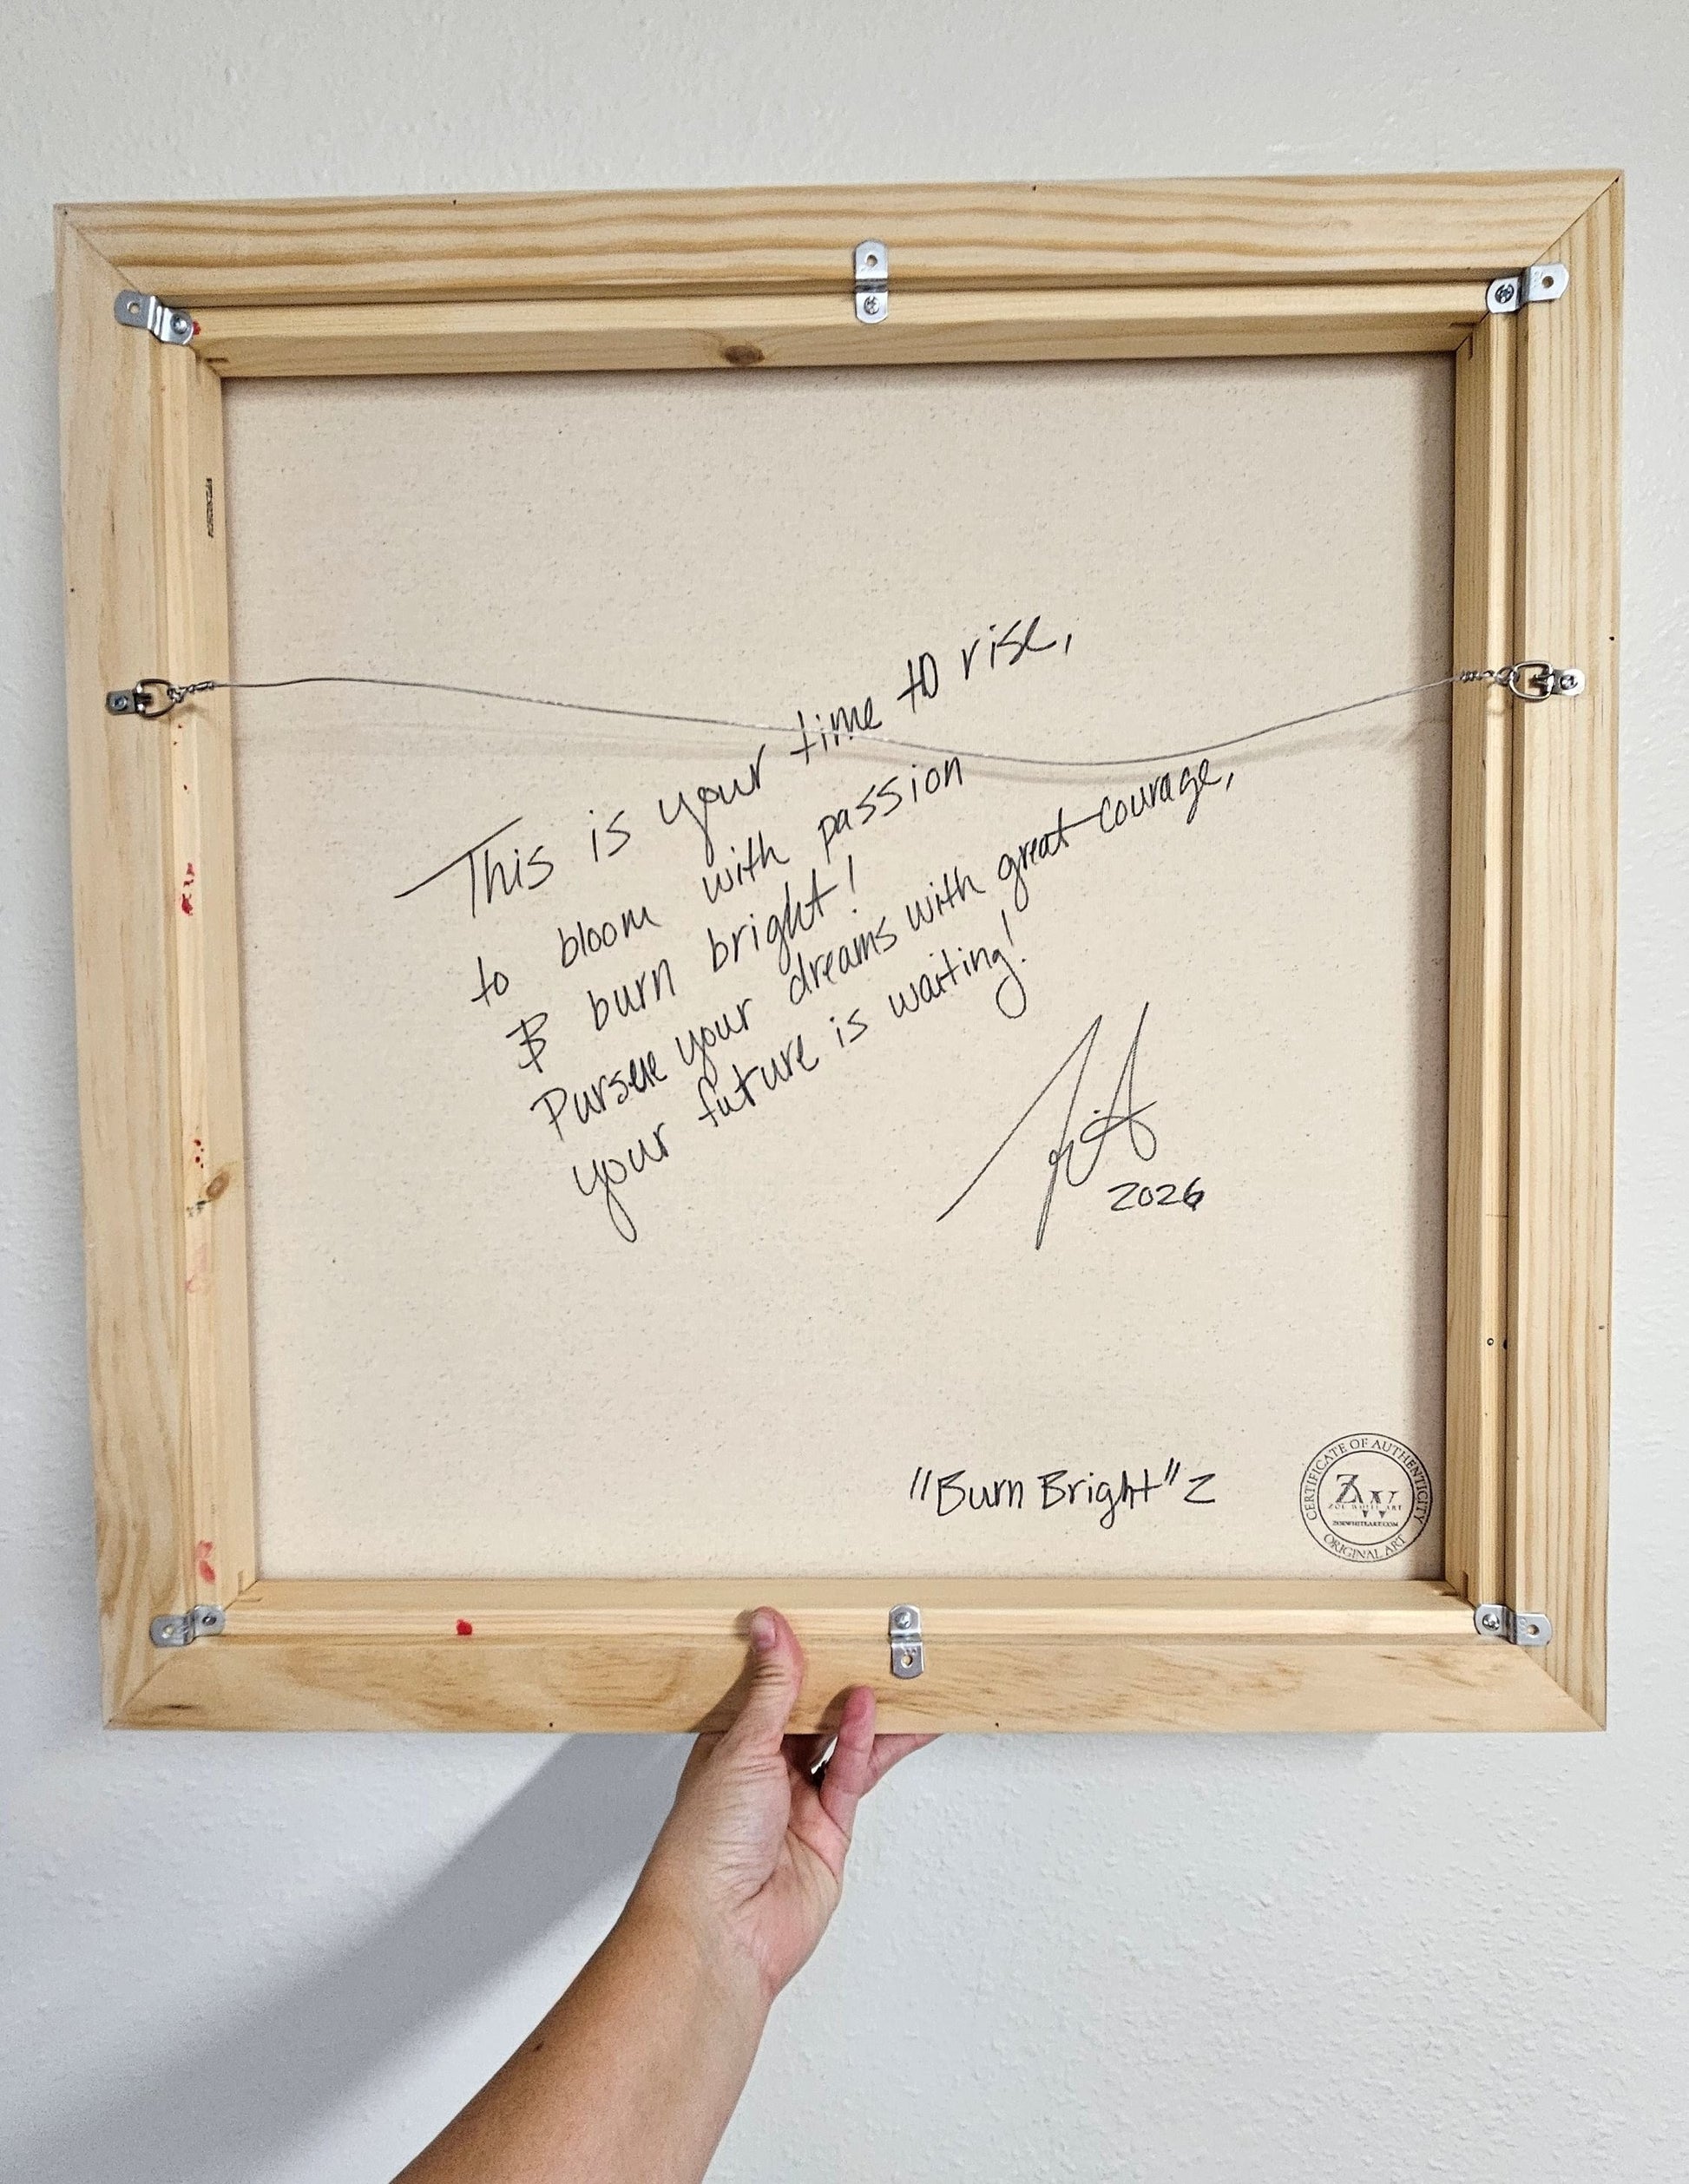 This is your time to rise,
to bloom with passion
& burn bright!
Pursue your dreams with great courage,
your future is waiting!
2026
"Burn Bright" 2
CERTIFICATE OF AUTHENTICITY
ZW
ZOE WHITE ART
ZOEWHITEART.COM
ORIGINAL ART